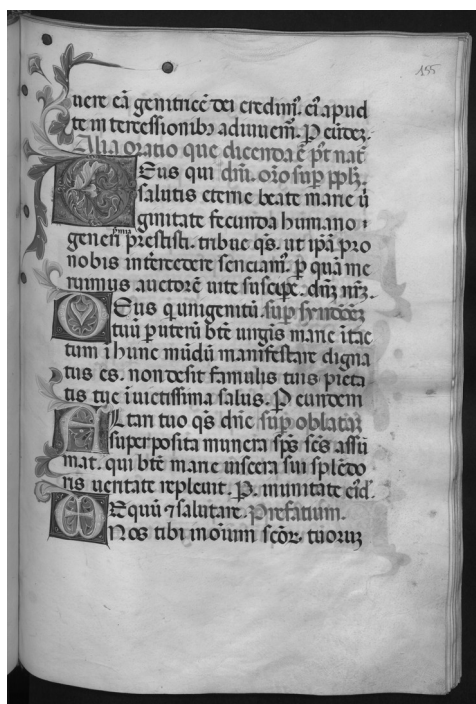 155
uere eā genitricē dei credim᷒. eī apud
te intercessionibꝫ adiuuem᷒. P eūdeꝫ.
Alia oratio que dicenda ē pꝰt natē
Deus qui dñi. orō sup pplꝫ.
salutis eterne beate marie ū
ginitate fecunda humano
p̄mia
generi prestitisti. tribue qs. ut ipā pro
nobis intercedere senciam᷒. p quā me
ruimus auctorē uite suscipe. dn̄ꝫ nr̄ꝫ.
Deus q unigenitū. sup
tuū p uterū bt̄e uirgīs marie ītac
tum ī hunc mūdū manifestare digna
tus es. non desit famulis tuis pieta
tis tue īuictissima salus. P eundem
Altari tuo qs dn̄e sup oblatas
superposita munera sp̄s sc̄s assū
mat. qui bt̄e marie uiscera sui splēdo
ris ueritate repleuit. P. in unitate eiꝰd.
Equū ⁊ salutare. Prefatium.
Nos tibi in oīum sc̄oꝝ. tuoruꝫ